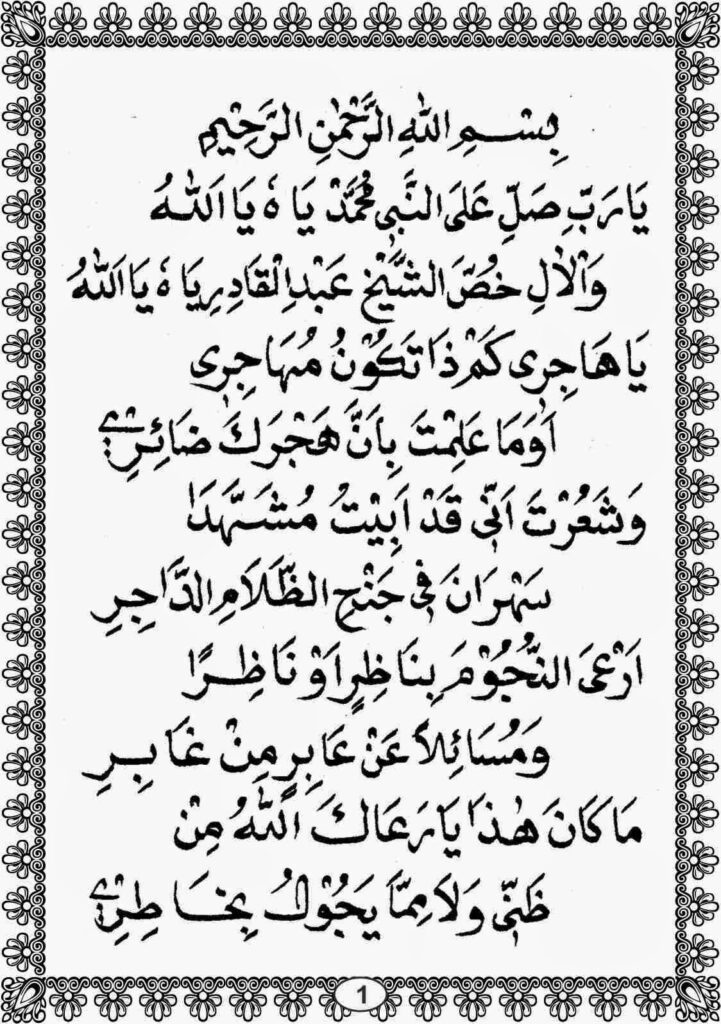 بِسْمِ اللهِ الرَّحْمٰنِ الرَّحِيْمِ
يَارَبِّ صَلِّ عَلَى النَّبِى مُحَمَّدْ يَا ه يَا اَللهُ
وَالْاٰلِ خُصَّ الشَّيْخِ عَبْدِالْقَادِرِيَا ه يَا اَللهُ
يَاهَاجِرِى كَمْ ذَا تَكُوْنُ مُهَاجِرِى
اَوَمَا عَلِمْتَ بِاَنَّ هَجْرَكَ ضَائِرِيْ
وَشَعُرْتَ اَنِّى قَدْ اَبِيْتُ مُسَهَّدًا
سَهْرَانَ فِى جَنْحِ الظَّلَامِ الدَّاجِرِ
اَرْعَى النُّجُوْمَ بِنَاظِرٍ اَوْ نَاظِرًا
وَمُسَائِلاً عَنْ عَابِرٍ مِنْ غَابِرِ
مَا كَانَ هٰذَا يَارَعَاكَ اللهُ مِنْ
ظَنِّى وَلَا مِمَّا يَجُوْلُ بِخَاطِرِيْ
1